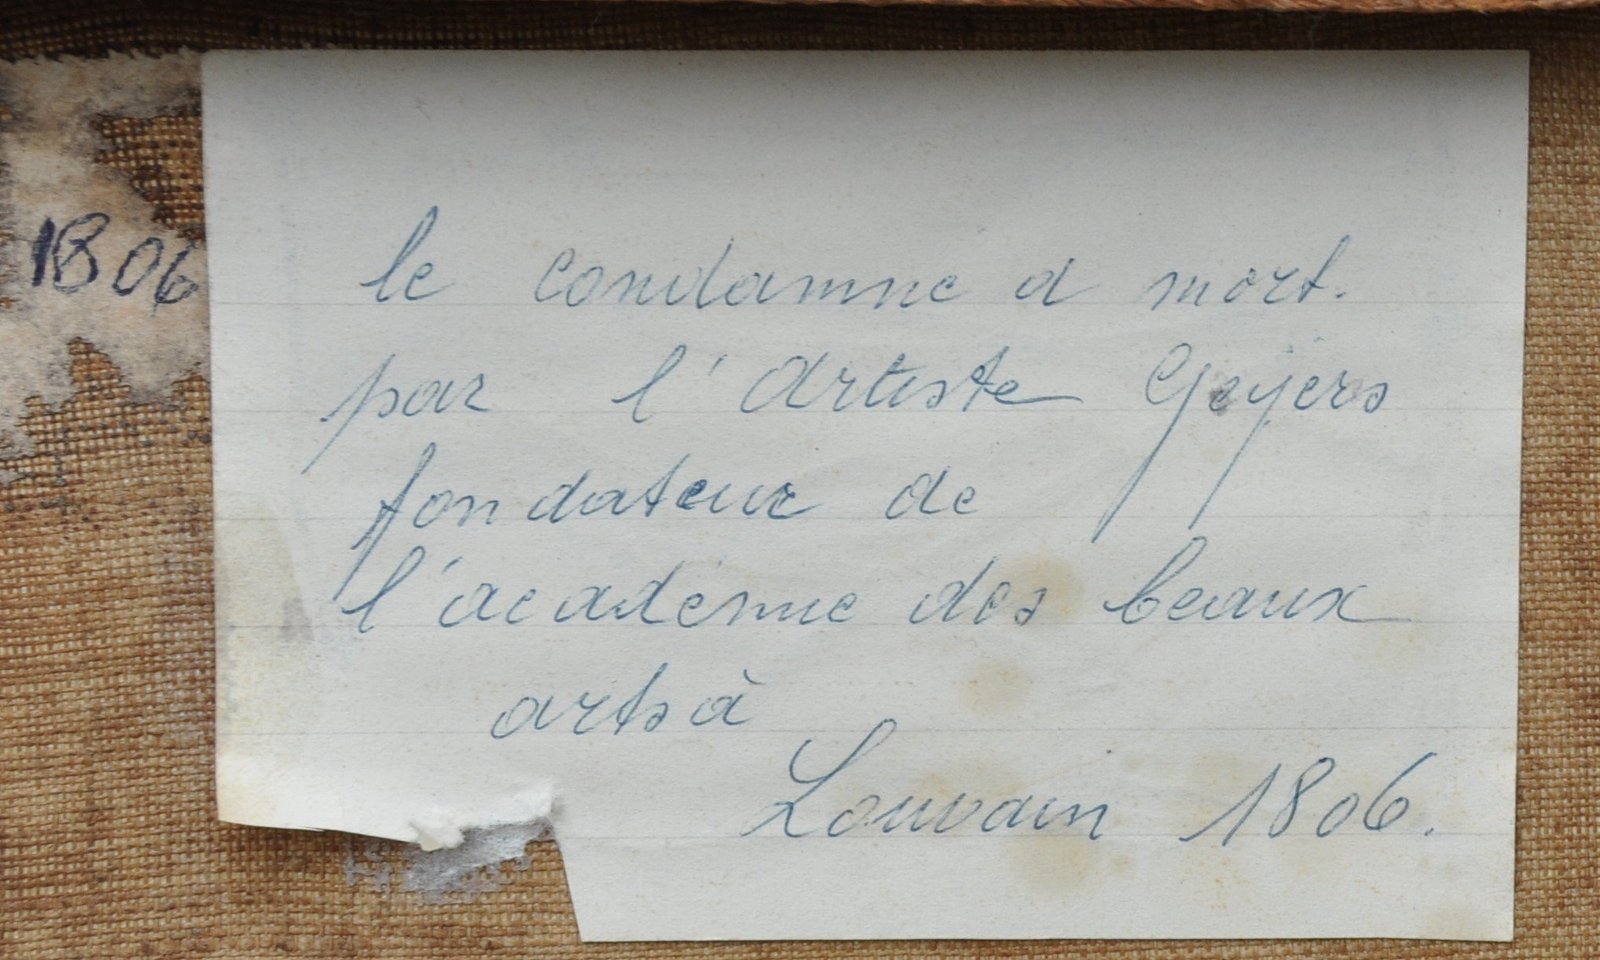 1806
le condamne a mort.
par l'Artiste Geyers
fondateur de
l'academie des beaux
arts à
Louvain 1806.